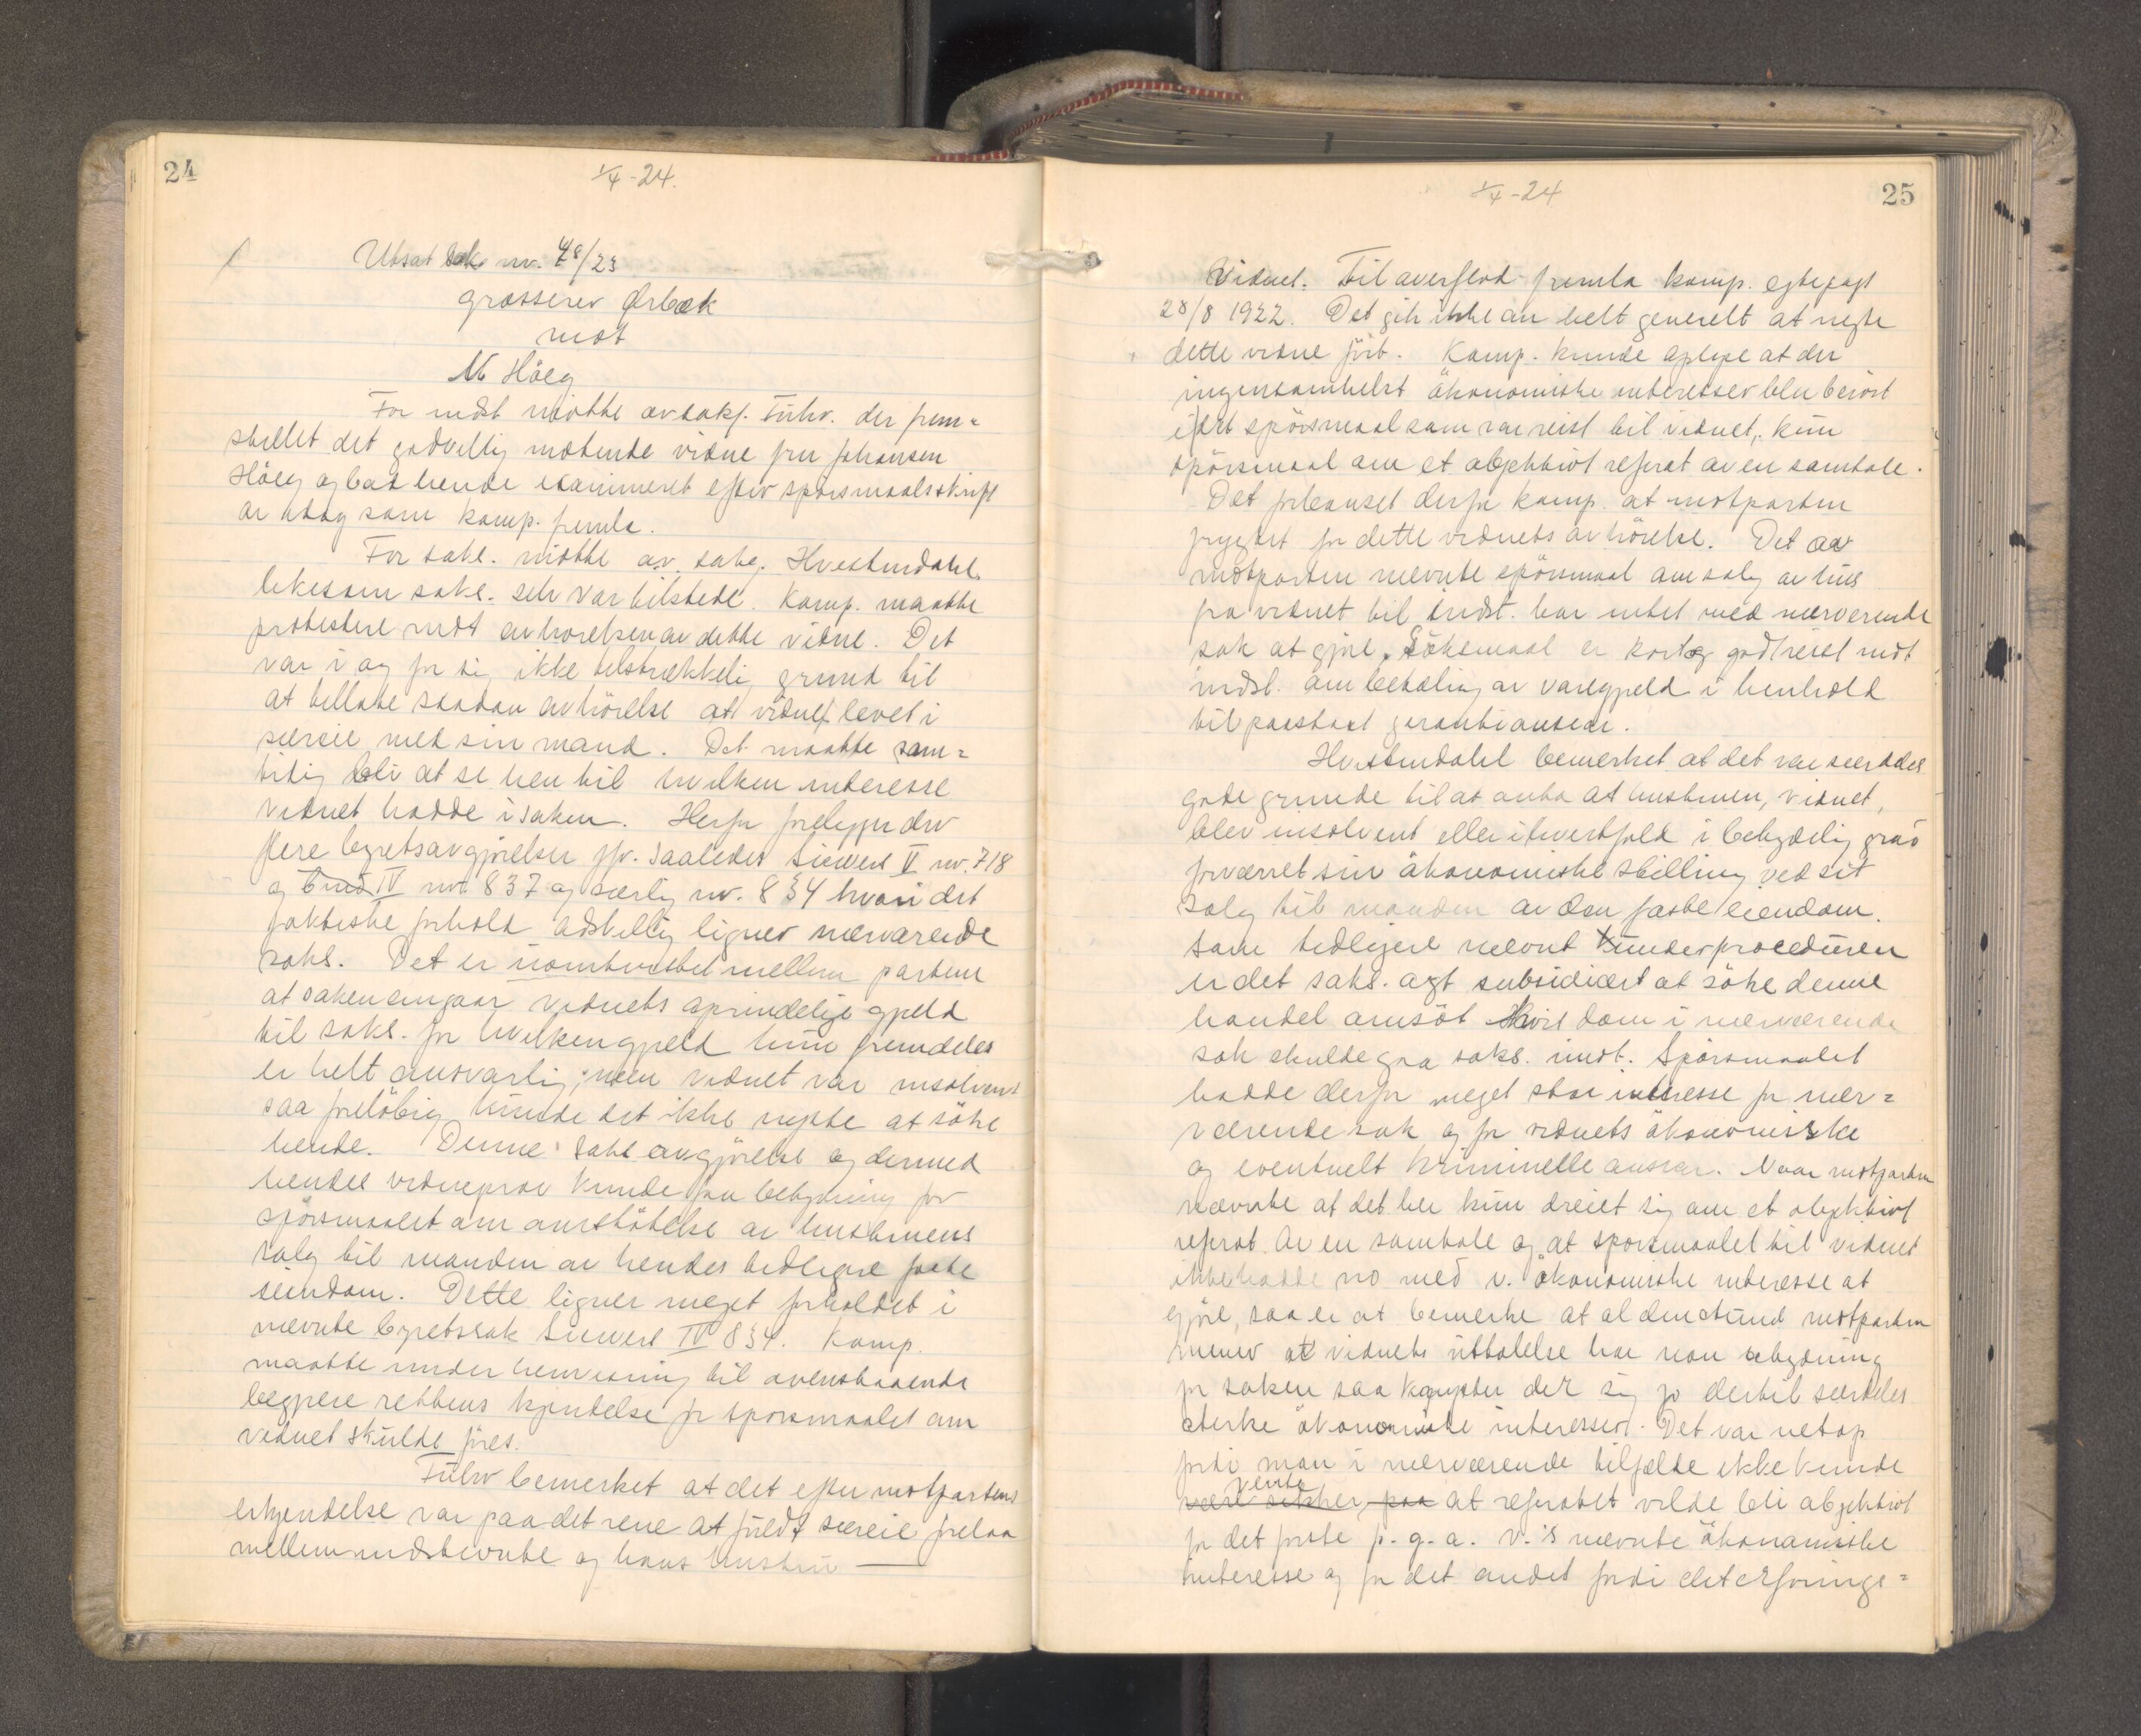 24
1/4-24.
Utsat sak nr. 48/23
grosserer Ørbæk
mot
N. Höeg
For indst mötte ov.sakf. Führ. der frem=
stillet det godvillig mötende vidne fru Johansen
Höeg og bad hende examineret efter spörsmaalsskrift
av idag som komp. fremla.
For saks. mötte ov. sakf. Hvistendahl
likesom saks. selv var tilstede. Komp. maatte
protestere mot avhörelsen av dette vidne. Det
var i og for sig ikke tilstrækkelig grund til
at tillate saadan avhörelse at vidnet levet i
særeie med sin mand. Det maatte sam=
tidig bli at se hen til hvilken interesse
vidnet hadde i saken. Herfor foreligger der
flere byretsavgjörelser jfr. saaledes Siewers V nr. 718
og bind IV nr. 837 og særlig nr. 834 hvori det
faktiske forhold adskillig ligner nærværende
saks. Det er uomtvistet mellem partene
at saken angaar vidnets oprindelige gjeld
til saks. for hvilken gjeld hun fremdeles
er helt ansvarlig; men vidnet var insolvent
saa forelöbig kunde det ikke nytte at söke
hende. Denne saks avgjörelse og dermed
hendes vidneprov kunde faa betydning for
spörsmaalet om omstötelse av hustruens
salg til manden av hendes tidligere faste
eiendom. Dette ligner meget forholdet i
nævnte byretssak Siewers IV 834. Komp.
maatte under henvisning til ovenstaaende
begjære rettens kjendelse for spörsmaalet om
vidnet skulde föres.
Führ bemerket at det efter motpartens
erkjendelse var paa det rene at fuldt særeie forelaa
mellem indstevnte og hans hustru
1/4-24
25
Vidnet. Til overflod fremla komp. egtepagt
28/8 1922. Det gik ikke an helt generelt at negte
dette vidne fört. Komp. kunde oplyse at der
ingensomhelst ökonomiske interesser blev berört
i det spörsmaal som var reist til vidnet, kun
spörsmaal om et objektivt referat av en samtale.
Det forbauset derfor komp. at motparten
frygtet for dette vidnets avhörelse. Det av
motparten nævnte spörsmaal om salg av hus
fra vidnet til indst. har intet med nærværende
sak at gjöre. Söksmaal er kort og godt reist mot
indst. om betaling av varegjeld i henhold
til paastaat garantiansvar.
Hvistendahl bemerket at det var særdeles
gode grunde til at anta at hustruen, vidnet,
blev insolvent eller ihvertfald i betydelig grad
forværret sin ökonomiske stilling ved sit
salg til manden av den faste eiendom.
Som tidligere nævnt under proceduren
er det saks. agt subsidiært at söke denne
handel omstöt hvis dom i nærværende
sak skulde gaa saks. imot. Spörsmaalet
hadde derfor meget stor interesse for nær=
værende sak og for vidnets ökonomiske
og eventuelt kriminelle ansvar. Naar motparten
nævnte at det her kun dreiet sig om et objektivt
referat av en samtale og at spörsmaalet til vidnet
ikke hadde no med v. ökonomiske interesse at
gjöre, saa er at bemerke at al den stund motparten
mener at vidnets uttalelse har noen betydning
for saken saa knytter der sig jo dertil særdeles
sterke ökonomiske interesser. Det var netop
fordi man i nærværende tilfælde ikke kunde
vente
være sikker paa at referatet vilde bli objektivt
for det förste p. g. a. v.'s nævnte ökonomiske
interesse og for det andet fordi det erfarings=